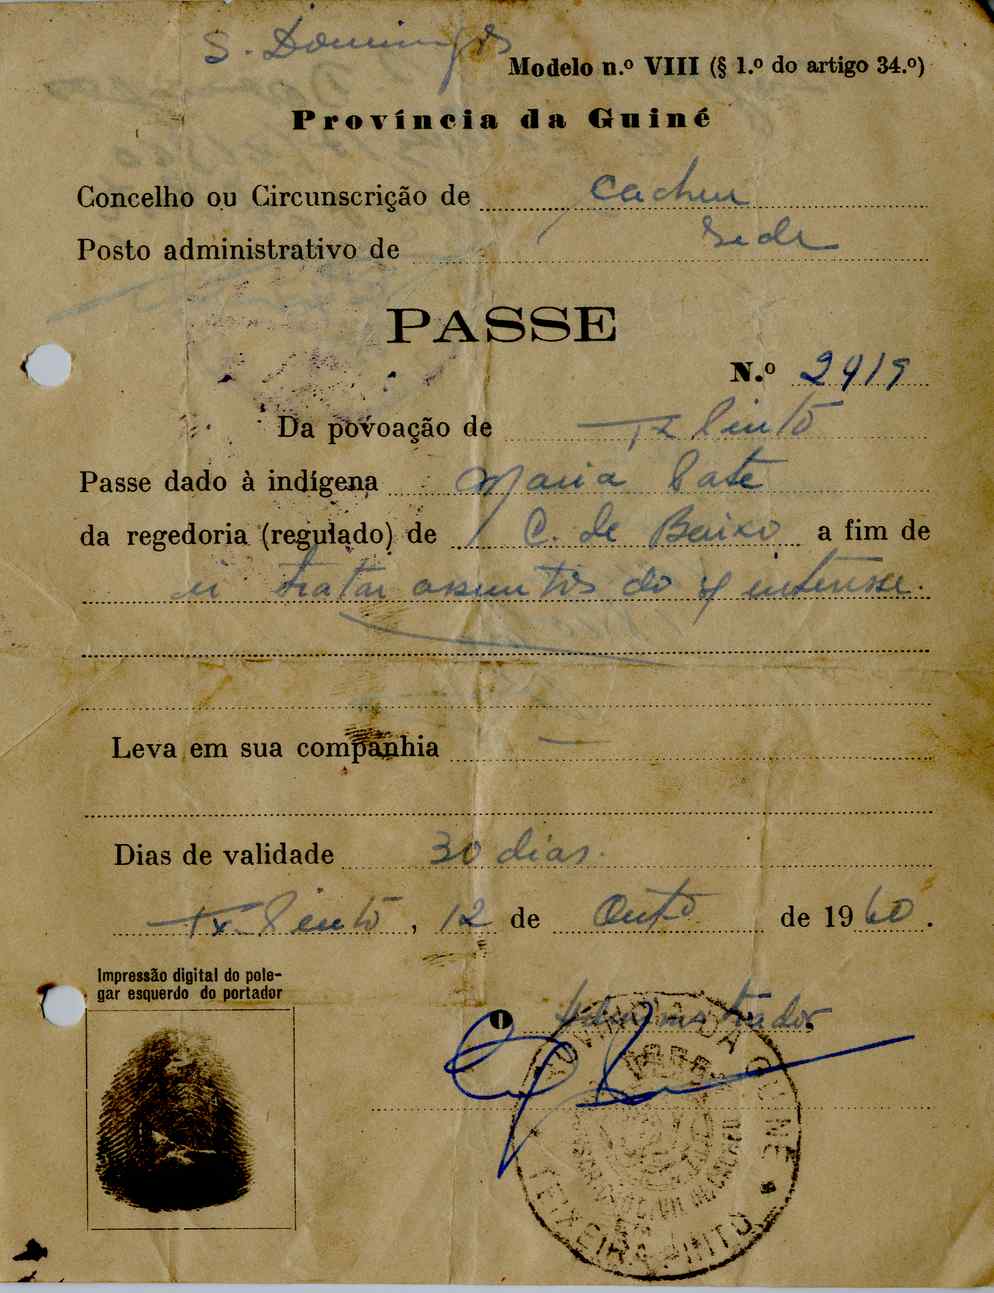 S. Domingos
Modelo n.º VIII (§ 1.º do artigo 34.º)
Província da Guiné
Concelho ou Circunscrição de Cacheu
Posto administrativo de Sede
PASSE
N.º 2419
Da povoação de Tx Pinto
Passe dado à indígena Maria
da regedoria (regulado) de C. de Baixo a fim de
ir tratar assuntos do s/ interesse.
Leva em sua companhia —
Dias de validade 30 dias.
Tx. Pinto, 12 de Outº de 1960.
Impressão digital do pole-
gar esquerdo do portador
O Administrador
PROVÍNCIA DA GUINÉ
TEIXEIRA PINTO